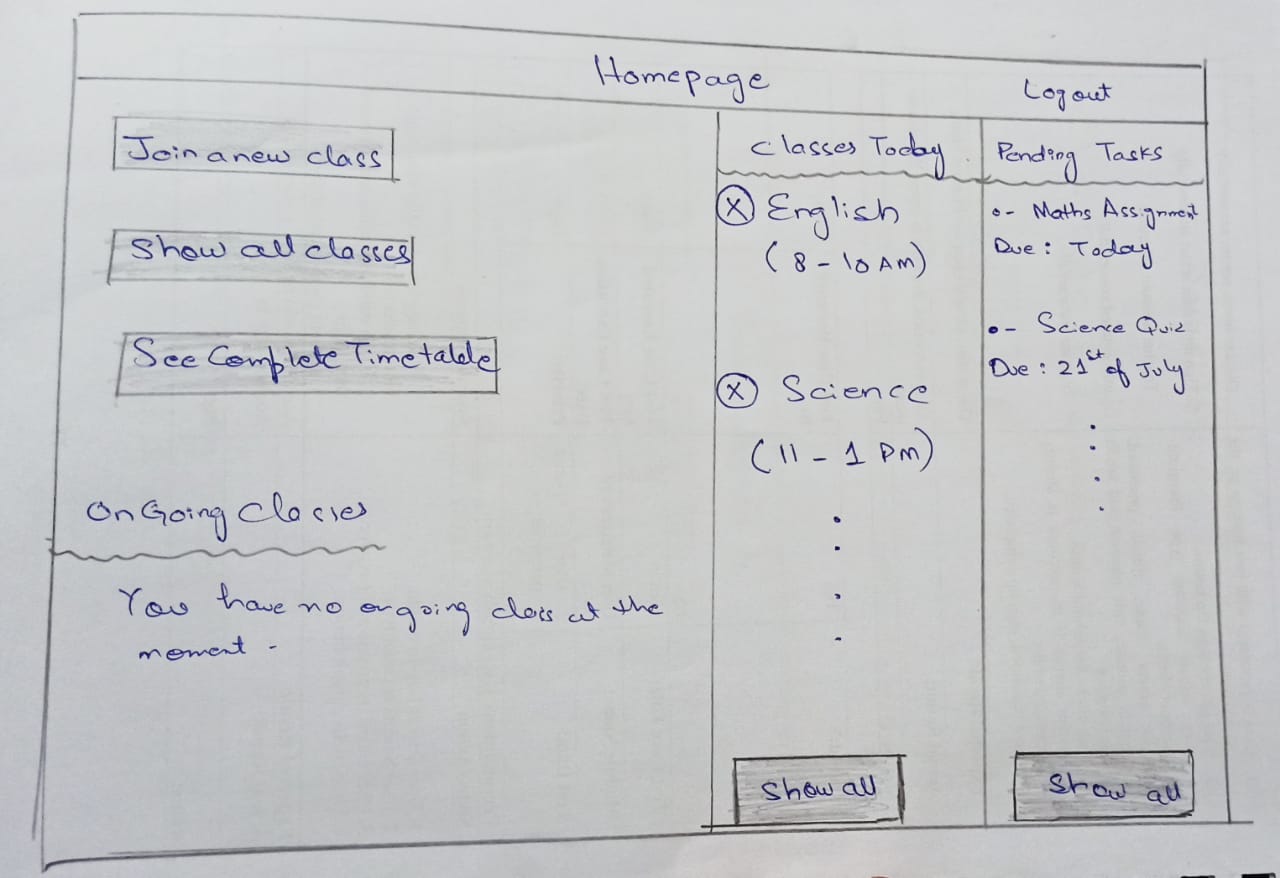 Homepage
Logout
Join a new class
Show all classes
See Complete Timetable
OnGoing Classes
You have no ongoing class at the
moment.
Classes Today
(X) English
(8 - 10 AM)
(X) Science
(11 - 1 PM)
Show all
Pending Tasks
- Maths Assignment
Due: Today
- Science Quiz
Due: 21st of July
Show all